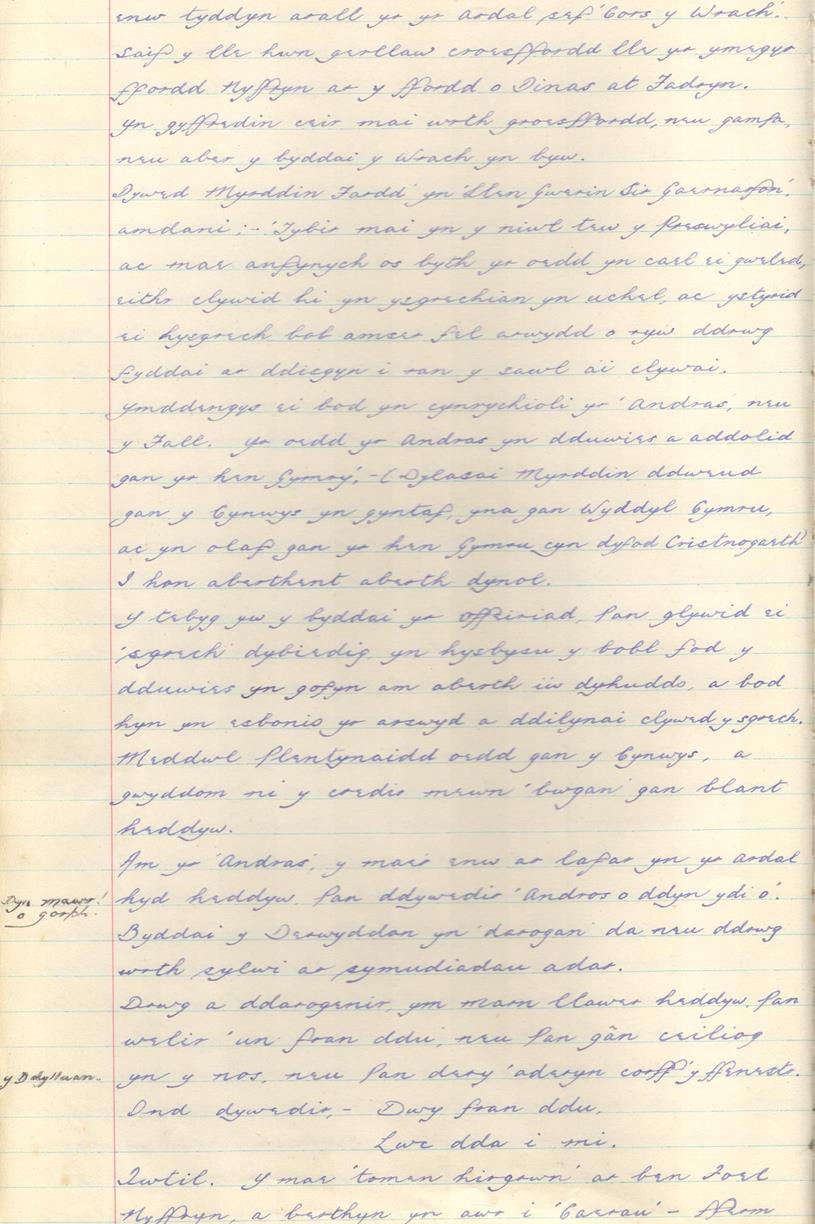 enw tyddyn arall yr yr Ardal sef 'Cors y Wrach'.
Saif y lle hwn gerllaw croesffordd lle yr ymegyr
ffordd Nyffryn ar y ffordd o Dinas at Fadryn.
Yn gyffredin ceir mai wrth groesffordd, neu gamfa,
neu aber y byddai y Wrach yn byw.
Dywed Myrddin Fardd yn 'Llen Gwerin Sir Gaernarfon'.
amdani :- 'Tybir mai yn y niwl tew y preswyliai,
ac mae anfynych os byth yr oedd yn cael ei gweled,
eithr clywid hi yn ysgrechian yn uchel, ac ystyrid
ei hysgrech bob amser fel arwydd o ryw ddrwg
fyddai ar ddisgyn i ran y sawl ai clywai.
Ymddengys ei bod yn cynrychioli yr 'Andras', neu
y Fall. Yr oedd yr Andras yn dduwies a addolid
gan yr hen Gymry', - (Dylasai Myrddin ddweud
gan y Cynwys yn gyntaf, yna gan Wyddyl Cymru,
ac yn olaf gan yr hen Gymru cyn dyfod Cristnogaeth)
I hon aberthent aberth dynol.
Y tebyg yw y byddai yr offeiriad, pan glywid ei
'sgrech' dybiedig, yn hysbysu y bobl fod y
dduwies yn gofyn am aberth iw dyhuddo, a bod
hyn yn esbonio yr arswyd a ddilynai clywed y sgrech.
Meddwl plentynaidd oedd gan y Cynwys, a
gwyddom ni y coedir mewn 'bwgan' gan blant
heddyw.
Am yr 'Andras', y mae'r enw ar lafar yn yr Ardal
hyd heddyw. Pan ddywedir 'Andros o ddyn ydi o'.
Dyn mawr!
o gorph.
Byddai y Derwyddon yn 'darogan' da neu ddrwg
wrth sylwi ar symudiadau adar.
Drwg a ddarogenir, ym marn llawer heddyw, pan
welir 'un fran ddu', neu pan gân ceiliog
yn y nos, neu pan dery 'aderyn corff' y ffenestr.
y Ddylluan.
Ond dywedir, - Dwy fran ddu.
Lwc dda i mi.
Twtil. Y mae 'tomen hirgrwn' ar ben Foel
Nyffryn, a berthyn yn awr i 'Caerau' - fferm